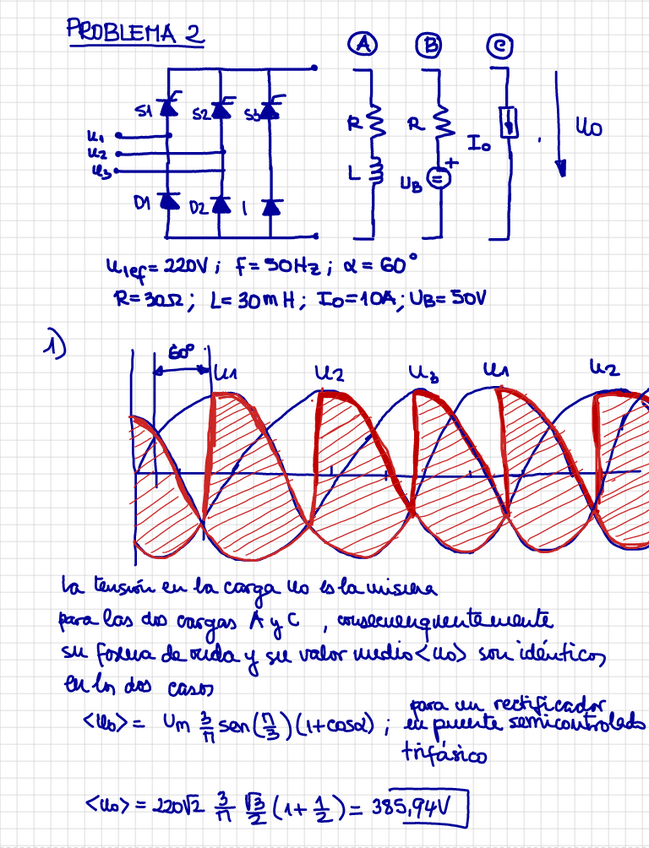 PROBLEMA 2
A B C
S1 S2 S3
R R I₀ u₀
u₁
u₂
u₃
L U_B + =
D1 D2 1
u₁ef = 220V ; f = 50Hz ; α = 60°
R = 30Ω ; L = 30mH ; I₀ = 10A ; U_B = 50V
1)
60° u₁ u₂ u₃ u₁ u₂
La tensión en la carga uo es la misma
para las dos cargas A y C , consecuenquentemente
su forma de onda y su valor medio <uo> son idénticos
en los dos casos
<uo> = Um 3/π sen(π/3)(1+cosα) ; para un rectificador
en puente semicontrolado
trifásico
<uo> = 220√2 3/π √3/2 (1 + 1/2) = 385,94V